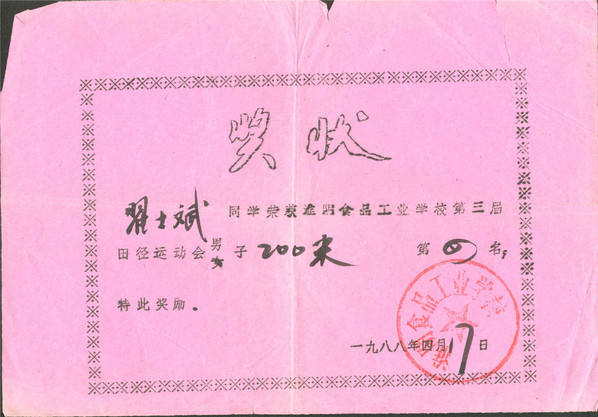 奖状
翟士斌 同学荣获淮阴食品工业学校第三届
田径运动会男女子 200米 第 四 名；
特此奖励.
一九八八年四月17日
淮阴食品工业学校